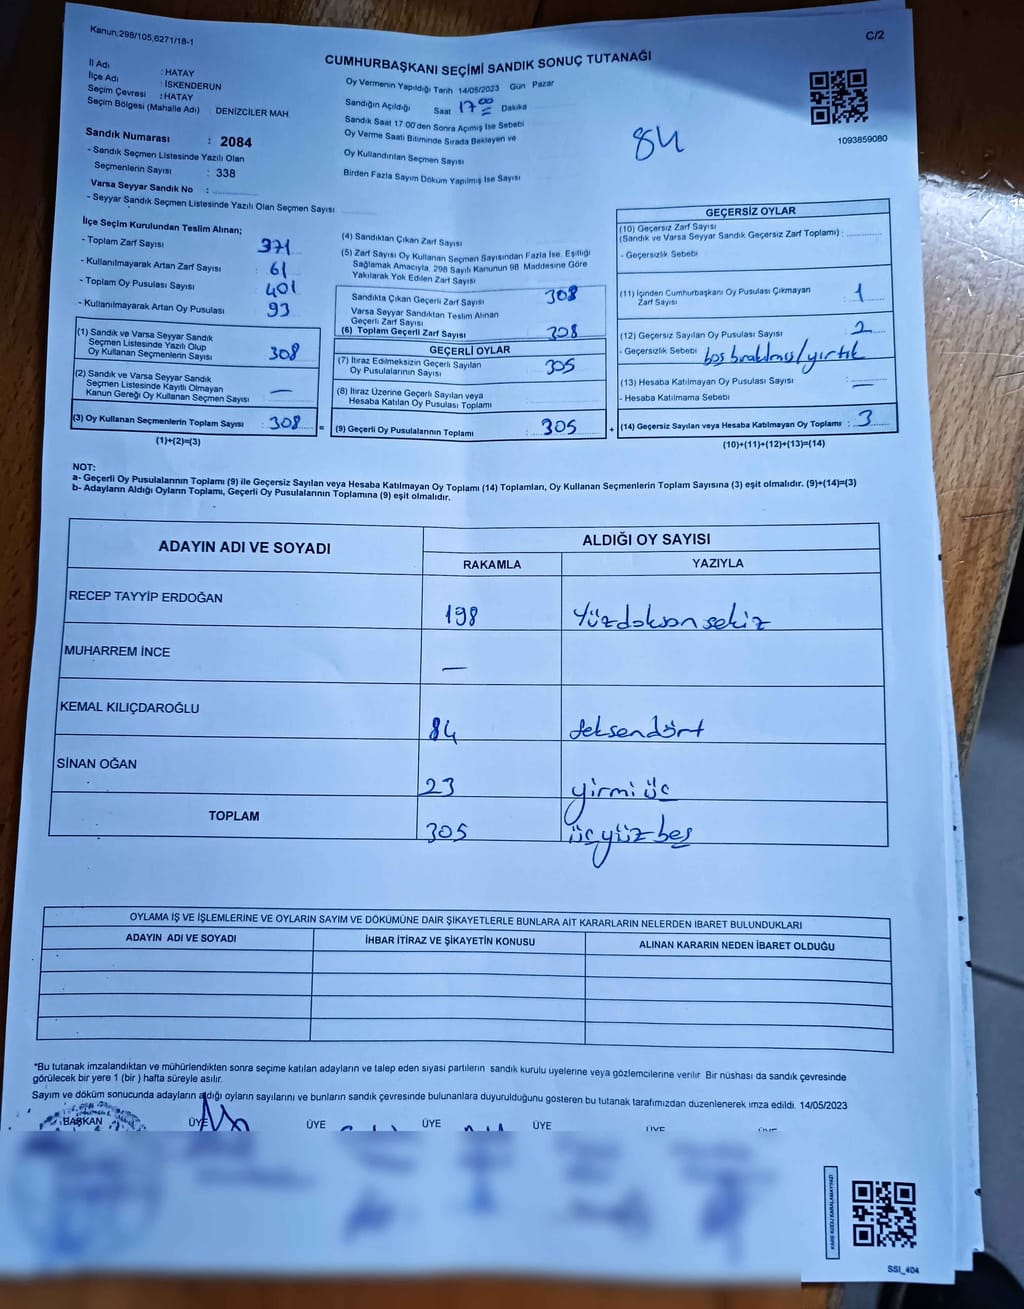 Kanun,298/105,6271/18-1
C/2
CUMHURBAŞKANI SEÇİMİ SANDIK SONUÇ TUTANAĞI
İl Adı : HATAY
İlçe Adı : İSKENDERUN
Seçim Çevresi : HATAY
Seçim Bölgesi (Mahalle Adı) DENİZCİLER MAH
Sandık Numarası : 2084
- Sandık Seçmen Listesinde Yazılı Olan
Seçmenlerin Sayısı : 338
Varsa Seyyar Sandık No :
- Seyyar Sandık Seçmen Listesinde Yazılı Olan Seçmen Sayısı
Oy Vermenin Yapıldığı Tarih 14/05/2023 Gün Pazar
Sandığın Açıldığı Saat 17 00 Dakika
Sandık Saat 17 00'den Sonra Açımış İse Sebebi
Oy Verme Saati Bitiminde Sırada Bekleyen ve
Oy Kullandırılan Seçmen Sayısı
Birden Fazla Sayım Döküm Yapılmış İse Sayısı
84
1093859080
İlçe Seçim Kurulundan Teslim Alınan;
- Toplam Zarf Sayısı 371
- Kullanılmayarak Artan Zarf Sayısı : 61
- Toplam Oy Pusulası Sayısı : 401
- Kullanılmayarak Artan Oy Pusulası : 93
(1) Sandık ve Varsa Seyyar Sandık
Seçmen Listesinde Yazılı Olup
Oy Kullanan Seçmenlerin Sayısı : 308
(2) Sandık ve Varsa Seyyar Sandık
Seçmen Listesinde Kayıtlı Olmayan
Kanun Gereği Oy Kullanan Seçmen Sayısı : —
(3) Oy Kullanan Seçmenlerin Toplam Sayısı : 308 =
(1)+(2)=(3)
(4) Sandıktan Çıkan Zarf Sayısı
(5) Zarf Sayısı Oy Kullanan Seçmen Sayısından Fazla İse, Eşitliği
Sağlamak Amacıyla, 298 Sayılı Kanunun 98. Maddesine Göre
Yakılarak Yok Edilen Zarf Sayısı
Sandıkta Çıkan Geçerli Zarf Sayısı 308
Varsa Seyyar Sandıktan Teslim Alınan
Geçerli Zarf Sayısı
(6) Toplam Geçerli Zarf Sayısı 308
GEÇERLİ OYLAR
(7) İtiraz Edilmeksizin Geçerli Sayılan
Oy Pusulalarının Sayısı 305
(8) İtiraz Üzerine Geçerli Sayılan veya
Hesaba Katılan Oy Pusulası Toplamı
(9) Geçerli Oy Pusulalarının Toplamı 305 +
GEÇERSİZ OYLAR
(10) Geçersiz Zarf Sayısı
(Sandık ve Varsa Seyyar Sandık Geçersiz Zarf Toplamı) :
- Geçersizlik Sebebi
(11) İçinden Cumhurbaşkanı Oy Pusulası Çıkmayan
Zarf Sayısı 1
(12) Geçersiz Sayılan Oy Pusulası Sayısı 2
- Geçersizlik Sebebi boş bırakılmış/yırtık
(13) Hesaba Katılmayan Oy Pusulası Sayısı : —
- Hesaba Katılmama Sebebi
(14) Geçersiz Sayılan veya Hesaba Katılmayan Oy Toplamı : 3
(10)+(11)+(12)+(13)=(14)
NOT:
a- Geçerli Oy Pusulalarının Toplamı (9) ile Geçersiz Sayılan veya Hesaba Katılmayan Oy Toplamı (14) Toplamları, Oy Kullanan Seçmenlerin Toplam Sayısına (3) eşit olmalıdır. (9)+(14)=(3)
b- Adayların Aldığı Oyların Toplamı, Geçerli Oy Pusulalarının Toplamına (9) eşit olmalıdır.
ADAYIN ADI VE SOYADI
ALDIĞI OY SAYISI
RAKAMLA YAZIYLA
RECEP TAYYİP ERDOĞAN 198 Yüzdoksansekiz
MUHARREM İNCE —
KEMAL KILIÇDAROĞLU 84 seksendört
SİNAN OĞAN 23 yirmi üç
TOPLAM 305 üçyüz beş
OYLAMA İŞ VE İŞLEMLERİNE VE OYLARIN SAYIM VE DÖKÜMÜNE DAİR ŞİKAYETLERLE BUNLARA AİT KARARLARIN NELERDEN İBARET BULUNDUKLARI
ADAYIN ADI VE SOYADI İHBAR İTİRAZ VE ŞİKAYETİN KONUSU ALINAN KARARIN NEDEN İBARET OLDUĞU
*Bu tutanak imzalandıktan ve mühürlendikten sonra seçime katılan adayların ve talep eden siyasi partilerin sandık kurulu üyelerine veya gözlemcilerine verilir Bir nüshası da sandık çevresinde
görülecek bir yere 1 (bir) hafta süreyle asılır.
Sayım ve döküm sonucunda adayların aldığı oyların sayılarını ve bunların sandık çevresinde bulunanlara duyurulduğunu gösteren bu tutanak tarafımızdan düzenlenerek imza edildi. 14/05/2023
BAŞKAN ÜYE ÜYE ÜYE ÜYE ÜYE
KARE KODU KARALAMAYINIZ!
SSI_404